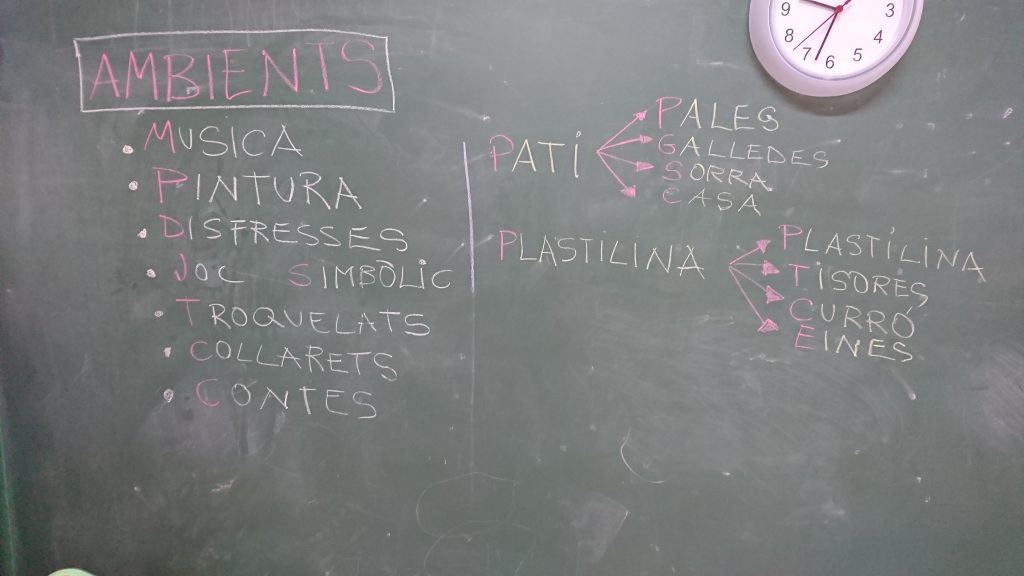 AMBIENTS
• MUSICA
• PINTURA
• DISFRESSES
• JOC SIMBÒLIC
• TROQUELATS
• COLLARETS
• CONTES
PATÍ
PALES
GALLEDES
SORRA
CASA
PLASTILINA
PLASTÍLINA
TISORES
CURRÓ
EINES
9 3
8 4
7 6 5